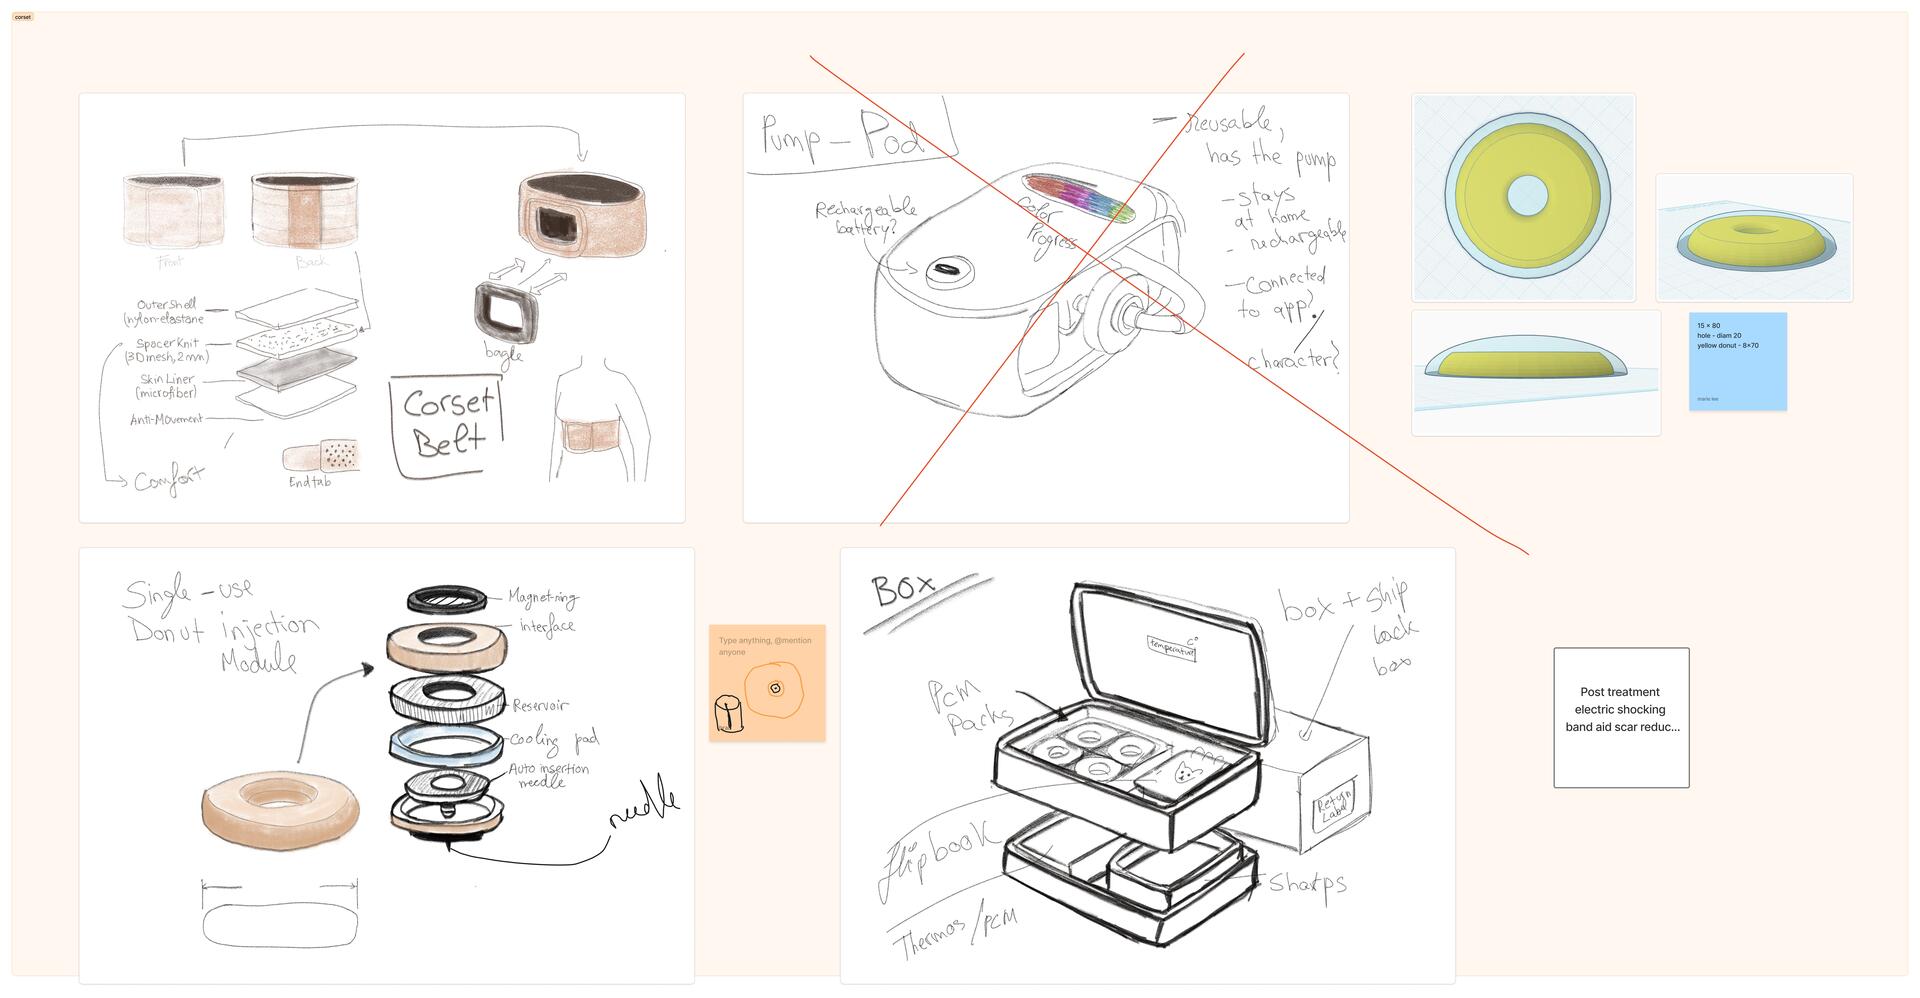 corset
Front
Back
Outer Shell
(nylon-elastane
Spacer Knit
(3D mesh, 2mm)
Skin Liner
(microfiber)
Anti-Movement
Comfort
End tab
bagle
Corset
Belt
Pump - Pod
Rechargeable
battery?
Color
Progress
- reusable,
has the pump
- stays
at home
- rechargeable
- Connected
to app?
character?
15 x 80
hole - diam 20
yellow donut - 8x70
marie lee
Single-use
Donut injection
Module
Magnet-ring
interface
Reservoir
Cooling pad
Auto insertion
needle
needle
Type anything, @mention
anyone
BOX
temperature
C°
box + ship
back
box
PCM
Packs
Return
Label
flipbook
Thermos/PCM
Sharps
Post treatment
electric shocking
band aid scar reduc...